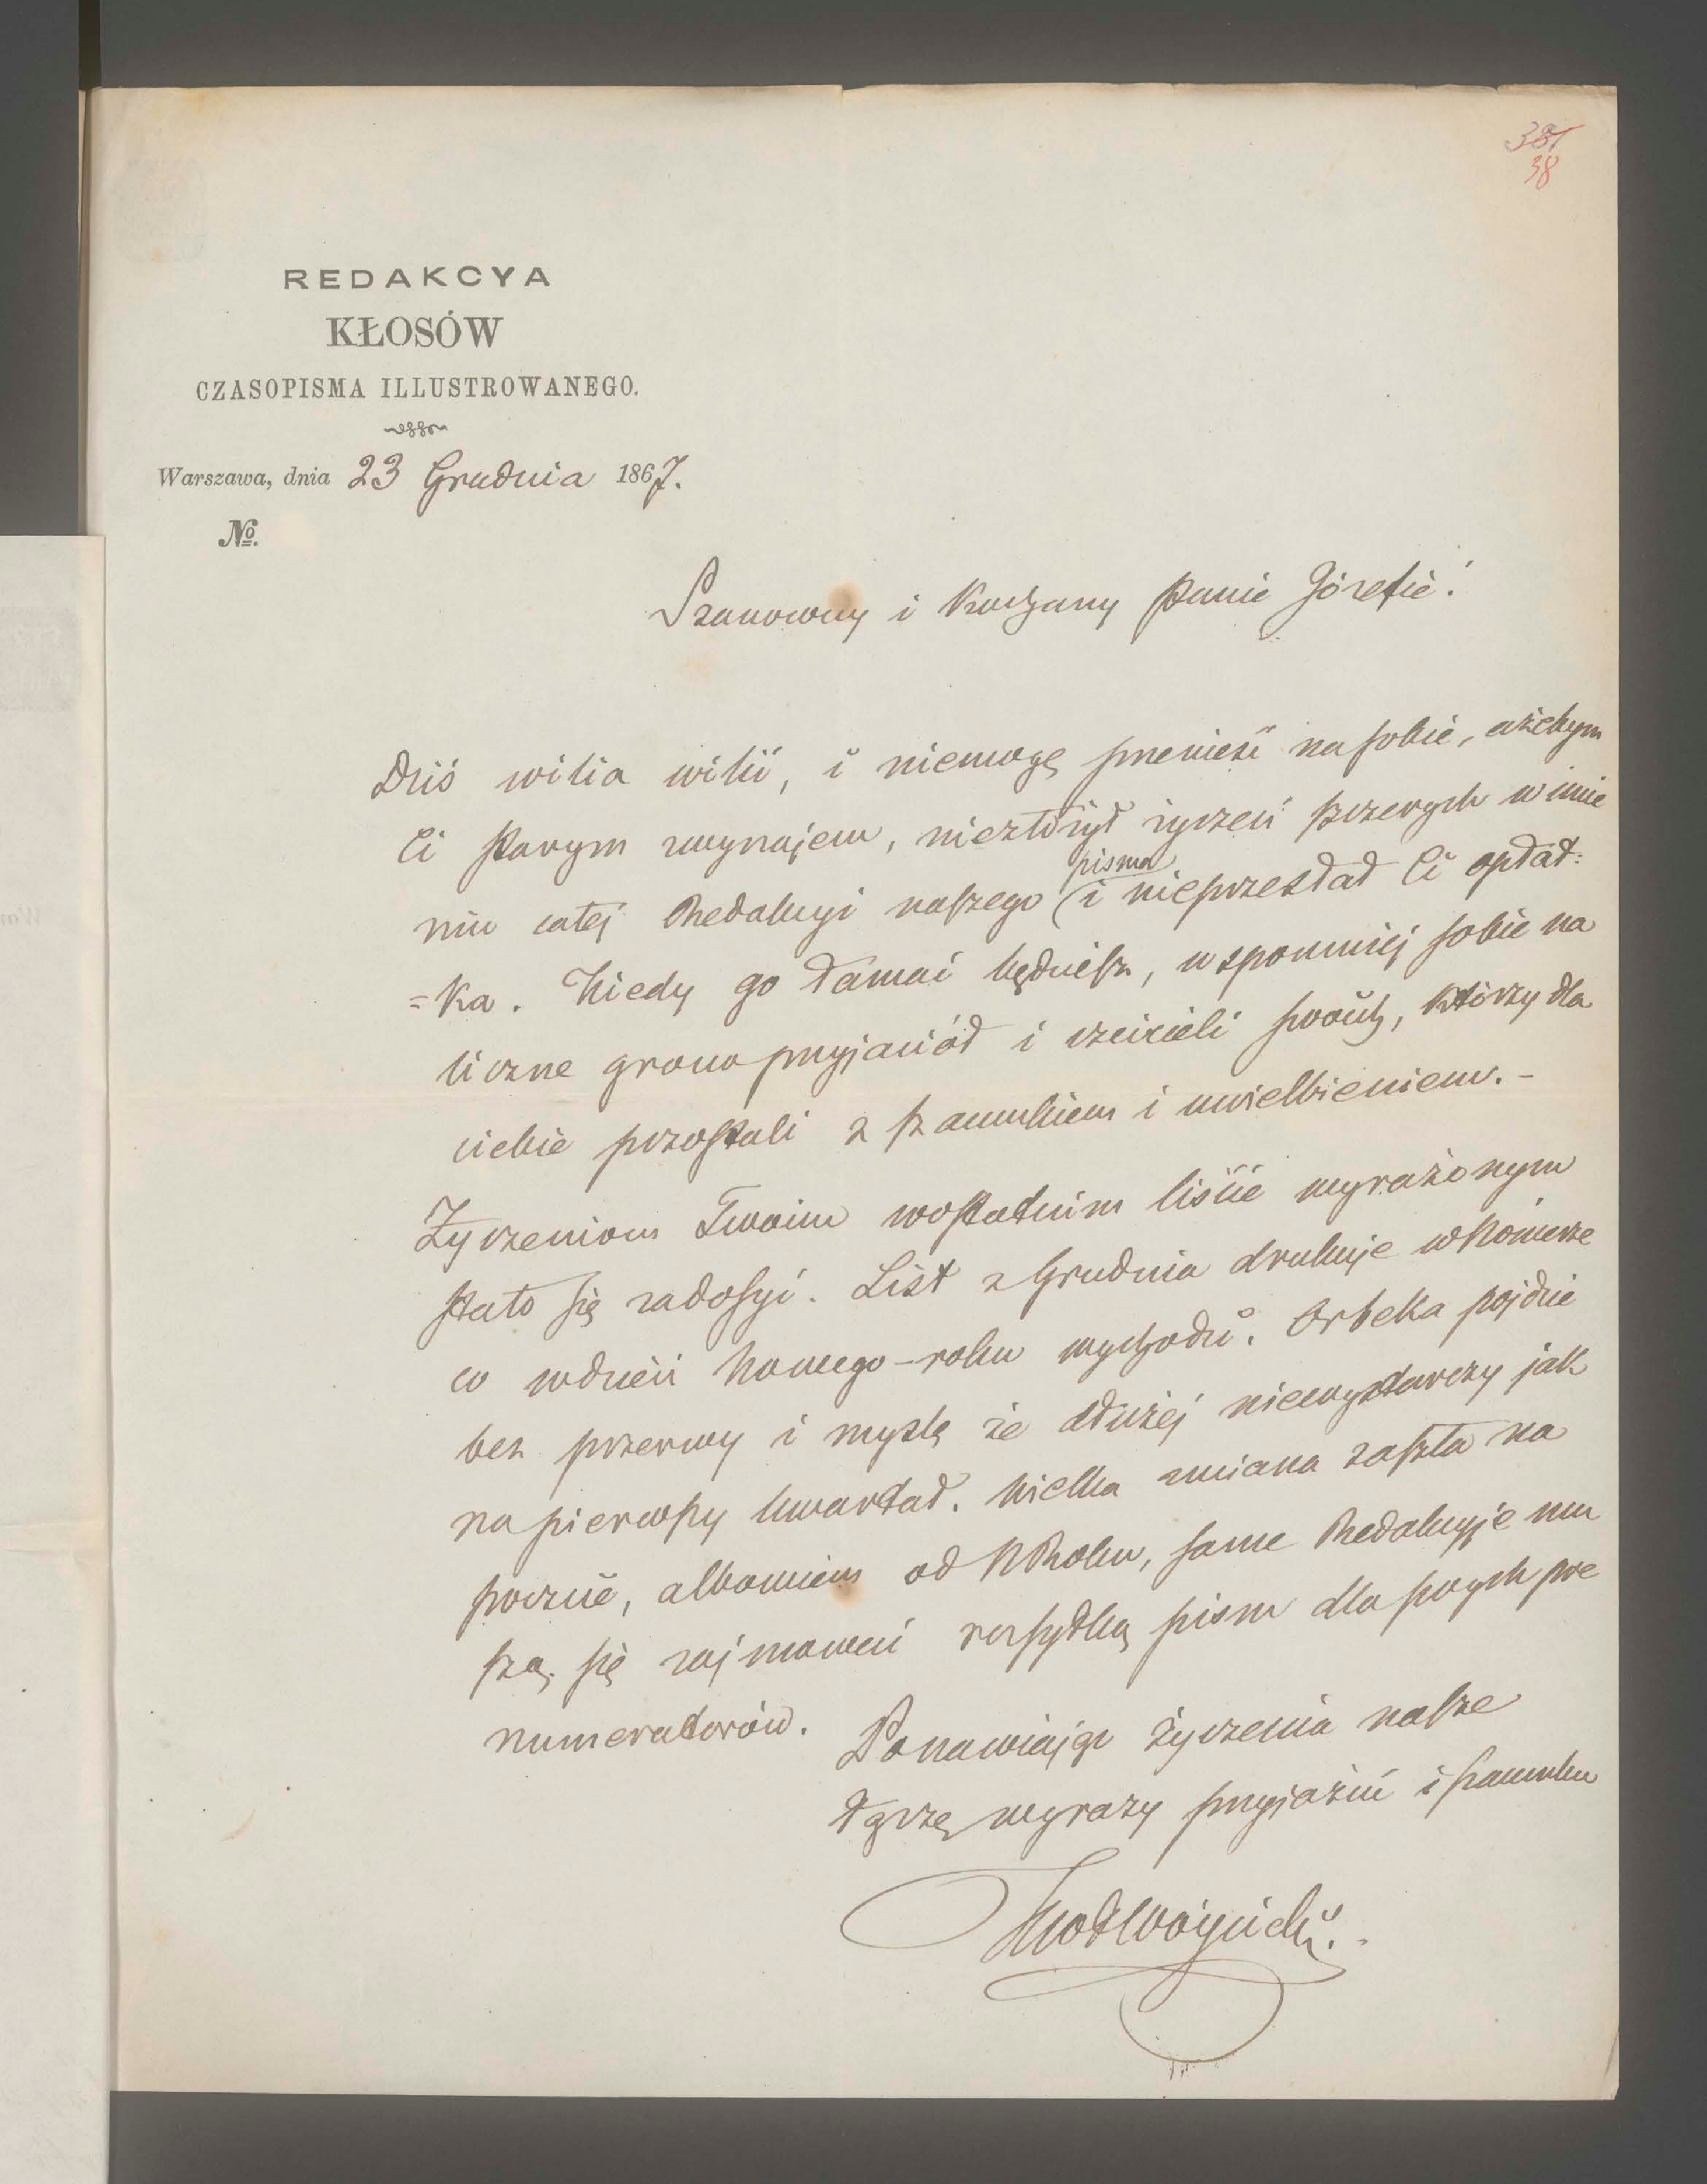 381
38
REDAKCYA
KŁOSÓW
CZASOPISMA ILLUSTROWANEGO.
Warszawa, dnia 23 Grudnia 1867.
№.
Szanowny i Kochany Panie Józefie!
Dziś wilia wilii, i niemogę przenieść na sobie, ażebym
Ci starym zwyczajem, niezłożył życzeń szczerych w imie
niu całej Redakcyi naszego pisma i nieprzesłał Ci opłat:
=ka. Kiedy go łamać będziesz, wspomniej sobie na
liczne grono przyjaciół i czcicieli swoich, którzy dla
ciebie pozostali z szacunkiem i uwielbieniem. -
Życzeniom Twoim wostatnim liście wyrażonym
stało się zadosyć. List z Grudnia drukuje wNomerze
co wdzień Nowego-roku wychodzi. Orbeka pojdzie
bez przerwy i myslę że dłużej niewystarczy jak
na pierwszy kwartał. Wielka zmiana zaszła na
poczcie, albowiem od NRoku, same Redakcyje mu
szą się zajmować rozsyłką pism dla swych pre
numeratorów.
Ponawiając życzenia nasze
łączę wyrazy przyjaźni i szacunku
KWłWóycicki.